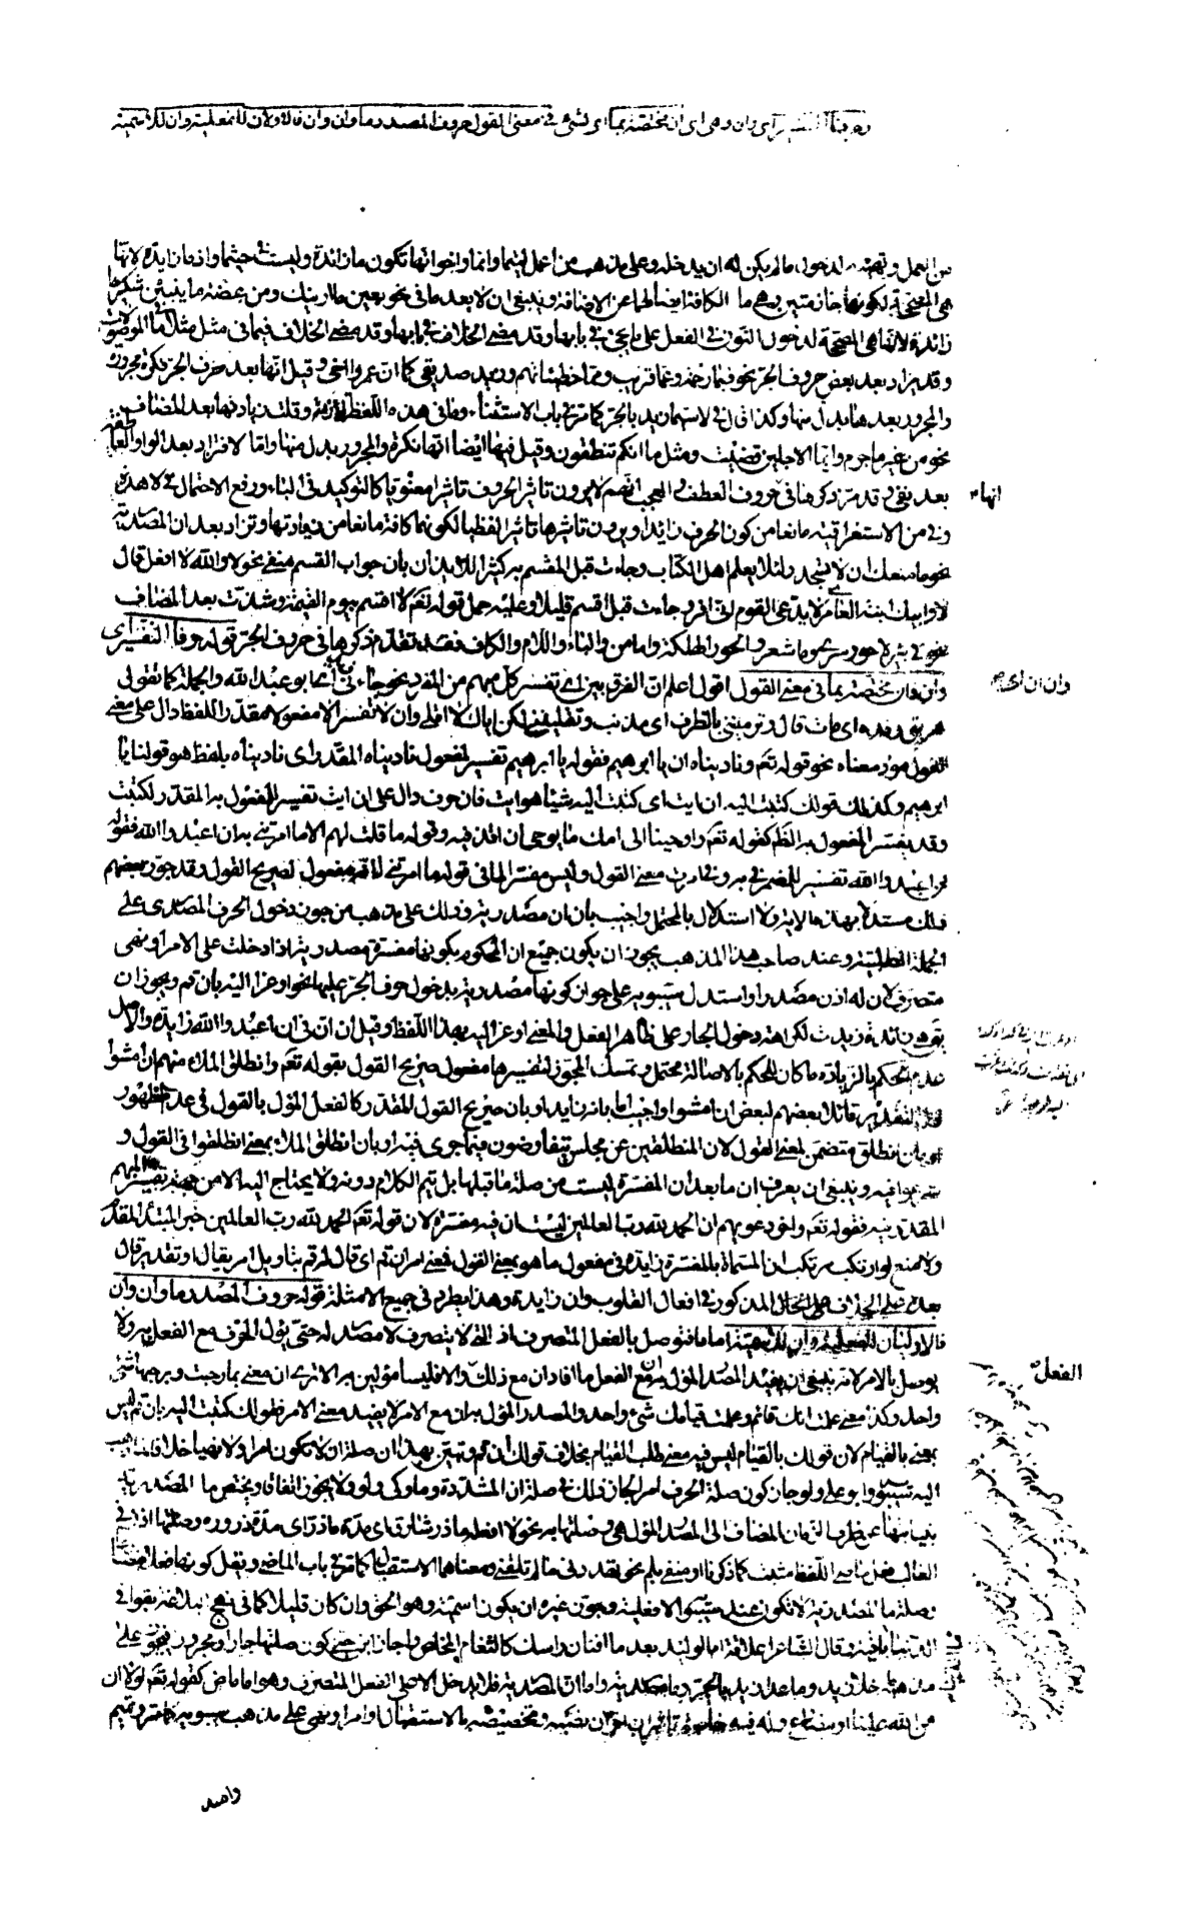 حرفا التفسير أي وان وهي اي ان مختصة بما في معنى القول حروف المصدر ما وان وان فالاولان للفعلية وان للاسمية
من العمل وتهيئه لدخول ما لم يكن له ان يدخله وعلى مذهب من اعمل ليتما وانما واخواتها تكون ما زائدة وليست في حيثما واذ ما زايدة لانها
هي المصححة لكونها جازمتين فهي ما الكافة ايضا لهما عن الاضافة وينبغي ان لا يعد ما في نحو بعين ما ارينك ومن عضة ما ينبتن شكيرها
زائدة لانها هي المصححة لدخول النون في الفعل على ما يجيء في بابها وقد مضى الخلاف في بابها وقد مضى الخلاف فيما في مثل مثلا ما في الموصولات
وقد يزاد بعد بعض حروف الجر نحو فبما رحمة وعما قريب ومما خطيئاتهم وزيد صديقي كما ان عمرا اخي وقيل انها بعد حرف الجر نكرة مجرورة
والمجرور بعدها بدل منها وكذا في لا سيما زيد بالجر كما مر في باب الاستثناء وما في هذه اللفظة لازمة وقلت زيادتها بعد المضاف
نحو من غير ما جرم وايما الاجلين قضيت ومثل ما انكم تنطقون وقيل فيها ايضا انها نكرة والمجرور بدل منها واما لا فزاد بعد الواو العاطفة
بعد نفي وقد مر ذكرها في حروف العطف والعجب انهم لا يرون تاثير الحروف تاثيرا معنويا كالتوكيد في الباء ورفع الاحتمال في لا هذه
انها
وفي من الاستغراقية مانعا من كون الحرف زايدا ويرون تاثيرها تاثيرا لفظيا لكونها كافة مانعا من زيادتها وتزاد بعد ان المصدرية
نحو ما منعك ان لا تسجد ولئلا يعلم اهل الكتاب وجاءت قبل المقسم به كثيرا للايذان بان جواب القسم منفي نحو لا والله لا افعل قال
لا وابيك ابنة العامري لا يدعي القوم اني افر وجاءت قبل اقسم قليلا وعليه حمل قوله تعم لا اقسم بيوم القيمة وشذت بعد المضاف
نحو في بئر لا حور سرى وما شعر والحور الهلكة واما من والباء واللام والكاف فقد تقدم ذكرها في حروف الجر قوله حرفا التفسير اي
وان فان مختصة بما في معنى القول اقول اعلم ان الفرق بين اي تفسر كل مبهم من المفرد نحو جاءني زيد اي ابو عبد الله والجملة كما تقول
وان ان اي
هريق رفده اي مات قال وترمينني بالطرف اي مذنب وتقلينني لكن اياك لا اقلي وان لا تفسر الا مفعولا مقدرا للفظ دال على معنى
القول مود معناه نحو قوله تعم وناديناه ان يا ابرهيم فقوله يا ابرهيم تفسير لمفعول ناديناه المقدر اي ناديناه بلفظ هو قولنا يا
ابرهيم وكذلك قولك كتبت اليه ان ايت اي كتبت اليه شيئا هو ايت فان حرف دال على ان ايت تفسير للمفعول به المقدر لكتبت
وقد يفسر المفعول به الظاهر كقوله تعم واوحينا الى امك ما يوحى ان اقذفيه وقوله ما قلت لهم الا ما امرتني به ان اعبدوا الله فقوله
ان اعبدوا الله تفسير للضمير في به وفي امرت معنى القول وليس مفسرا لما في قوله ما امرتني لانه مفعول لصريح القول وقد جوز بعضهم
ذلك مستدلا بهذه الاية ولا استدلال بالمحتمل واجيب بان ان مصدرية وذلك على مذهب من جوز دخول الحرف المصدري على
الجملة الطلبية وعند صاحب هذا المذهب يجوز ان يكون جميع ان المحكوم بكونها مفسرة مصدرية اذا دخلت على الامر او نهي
متصرف لان له اذن مصدرا واستدل سيبويه على جواز كونها مصدرية بدخول حرف الجر عليها نحو اوعز اليه بان قم ويجوز ان
يقع زائدة زيدت لكراهة دخول الجار على ظاهر الفعل والمعنى اوعز اليه بهذا اللفظ وقيل ان ان في ان اعبدوا الله زايدة والاصل
عدم الحكم بالزيادة ما كان للحكم بالاصالة محتمل وتمسك المجوز لتفسيرها مفعول صريح القول بقوله تعم وانطلق الملاء منهم ان امشوا
اذ التقدير قائلا بعضهم لبعض ان امشوا واجيب اما بانه زايد او بان صريح القول المقدر كالفعل المؤل بالقول في عدم الظهور
او بان انطلق متضمن لمعنى القول لان المنطلقين عن مجلس يتفاوضون فيما جرى فيه او بان انطلق الملاء بمعنى انطلقوا في القول و
شرعوا فيه وينبغي ان يعرف ان ما بعد ان المفسرة ليست من صلة ما قبلها بل يتم الكلام دونه ولا يحتاج اليه الا من جهة تفسير المبهم
المقدر فيه فقوله تعم واخر دعويهم ان الحمد لله رب العالمين ليست ان فيه مفسرة لان قوله تعم الحمد لله رب العالمين خبر المبتدأ المقدم
ولا منع لو ارتكب مرتكب ان المسماة بالمفسرة زايدة في مفعول ما هو بمعنى القول فمعنى امر ان قم اي قال له قم بتاويل امر بقال او تقدير قال
بعده على الخلاف في الحال المذكور في افعال القلوب وان زايدة وهذا يطرد في جميع الامثلة قوله حروف المصدر ما وان وان
فالاوليان للفعلية وان للاسمية اما ما فتوصل بالفعل المتصرف اذ الذي لا يتصرف لا مصدر له حتى يؤل الحرف مع الفعل به ولا
يوصل بالامر لانه ينبغي ان يفيد المصدر المؤل به ان مع الفعل ما افاد ان مع ذلك والا فليسا مؤلين به الا ترى ان معنى بما رحبت وبرحبها شيء
الفعل
واحد وكذا معنى علمت انك قائم وعلمت قيامك شيء واحد والمصدر المؤل به ان مع الامر لا يفيد معنى الامر فقولك كتبت اليه بان قم ليس
بمعنى بالقيام لان قولك بالقيام ليس فيه معنى طلب القيام بخلاف قولك ان قم وتبين بهذا ان صلة ان لا تكون امرا ولا نهيا خلافا لما ذهب
اليه سيبويه وابو علي ولو جاز كون صلة الحرف امرا لجاز ذلك في صلة ان المشددة وما وكي ولو ولا يجوز اتفاقا ويختص ما المصدرية
بنيابتها عن ظرف الزمان المضاف الى المصدر المؤل هي وصلتها به نحو لا افعله ما ذر شارق اي مدة ما ذر اي مدة ذروره وصلتها اذا في
الغالب فعل ماضي اللفظ مثبت كما ذكرنا او منفي بلم نحو تهددني ما لم تلقني ومعناهما الاستقبال كما مر في باب الماضي ويقل كونها فعلا مضارعا
وصلة ما المصدرية لا تكون عند سيبويه الا فعلية وجوز غيره ان يكون اسمية وهو الحق وان كان قليلا كما في نهج البلاغة بقوا في
الدنيا ما الدنيا باقية وقال الشاعر اعلاقة ام الوليد بعد ما افنان راسك كالثغام المخلس واجاز ابن جني كون صلتها جارا ومجرورا فيجوز على
مذهبه ما خلا زيد وما عدا زيد بالجر وما مصدرية واما ان المصدرية فلا يدخل الا على الفعل المتصرف وهو اما ماض كقوله تعم لولا ان
من الله علينا او مضارع وله فيه تاثيران نصبه وتخصيصه بالاستقبال او امر او نهي على مذهب سيبويه كما مر وتميم
واسد